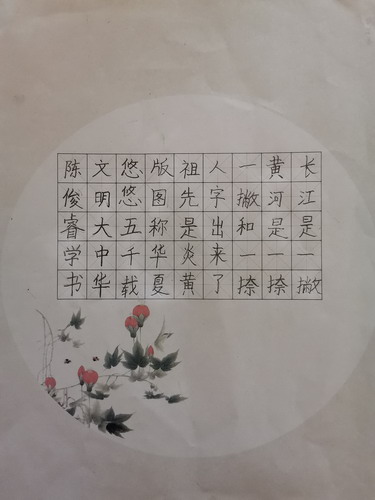 长江是一撇
黄河是一捺
一撇和一捺
人字出来了
祖先是炎黄
版图称华夏
悠悠五千载
文明大中华
陈俊睿学书